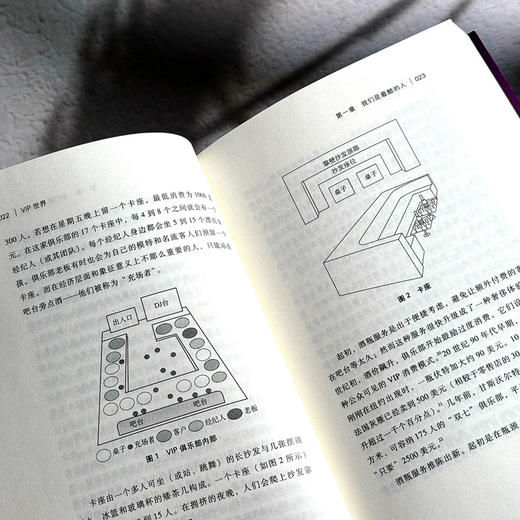 022 | VIP 世界
300 人。若想在星期五晚上留一个卡座，最低消费为 1000
元。在这家俱乐部的 17 个卡座中，每 4 到 8 个之间就会有一个
经纪人（或其团队）。每个经纪人身边都会坐 5 到 15 个漂亮
孩。俱乐部老板有时也会为自己的模特和名流客人们预留一
卡座。而在经济层面和象征意义上不那么重要的人，只能
吧台旁点酒——他们被称为“充场者”。
出入口
DJ台
吧台
吧台
桌子 充场者 客户 经纪人 老板
图 1 VIP 俱乐部内部
卡座由一个多人可坐（或站、跳舞）的长沙发与几张摆放
、冰篮和玻璃杯的矮茶几构成。一个卡座（如图 2 所示）
到 15 人。在拥挤的夜晚，人们会爬上沙发靠
第一章 我们是最酷的人 | 023
靠壁沙发顶部
沙发座位
桌子
桌子
图 2 卡座
起初，酒瓶服务是出于便捷考虑，避免让额外付费的
在吧台等太久，然而这种服务很快升级成了一种奢侈体
世纪初，酒价飙升，俱乐部开始鼓励过度消费。它们
种公众可见的 VIP 消费模式。²⁰ 20 世纪 90 年代早期，
刚刚在纽约出现时，一瓶伏特加大约 90 美元。10
法国灰雁已经卖到 500 美元（相较于零售店的 30
升超过一千个百分点）。²¹ 几年前，甘斯沃尔特
方米、可容纳 175 人的“双七”俱乐部，平
“只要”2500 美元。
酒瓶服务推陈出新。起初是在瓶颈